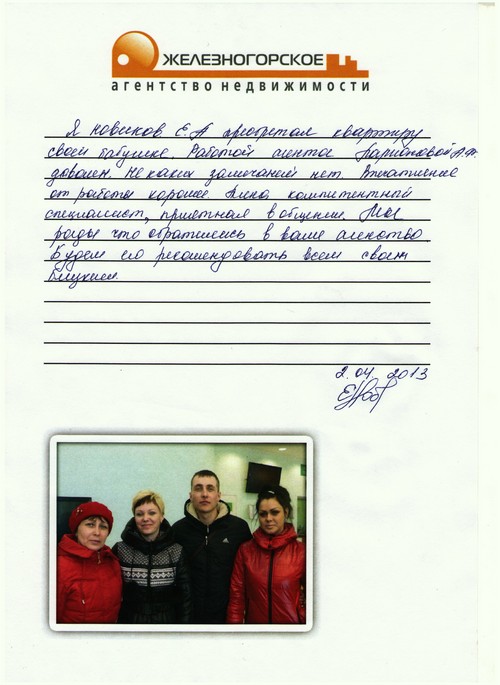 ЖЕЛЕЗНОГОРСКОЕ
агентство недвижимости
Я новиков Е. А преобретал квартиру
своей бабушке. Работой агента А.
доволен. Не каких замечаний нет. Впечатление
от работы хорошее. Алена компетентный
специалист, приятная в общении. Мы
рады что обратились в ваше агенство
Будем его рекомендовать всем своим
близким
2.04. 2013